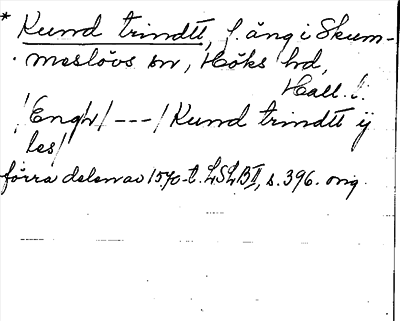 * Kund trindtt, f. äng i Skum-
meslövs sn, Höks hd,
Hall.
/Engh/ --- / Kund trindtt ij
les/
förra delen av 1570-t. LSLB II, s. 396. orig.